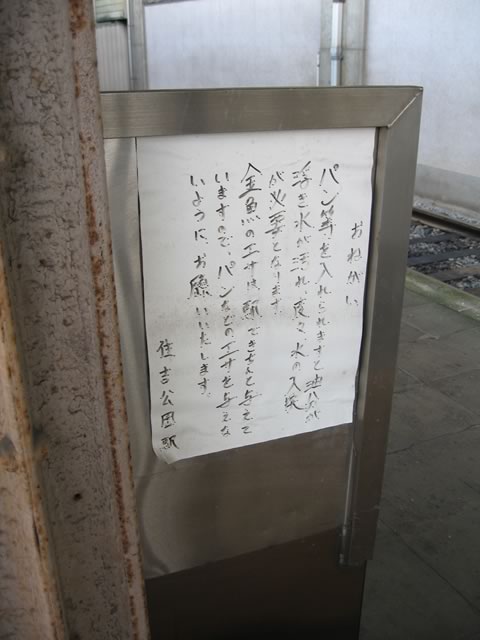 おねがい
パン等を入れられますと油分が
浮き水が汚れ、度々水の入替
が必要となります。
金魚のエサは駅できちんと与えて
いますので、パンなどのエサを与えな
いように、お願いいたします。
住吉公園駅